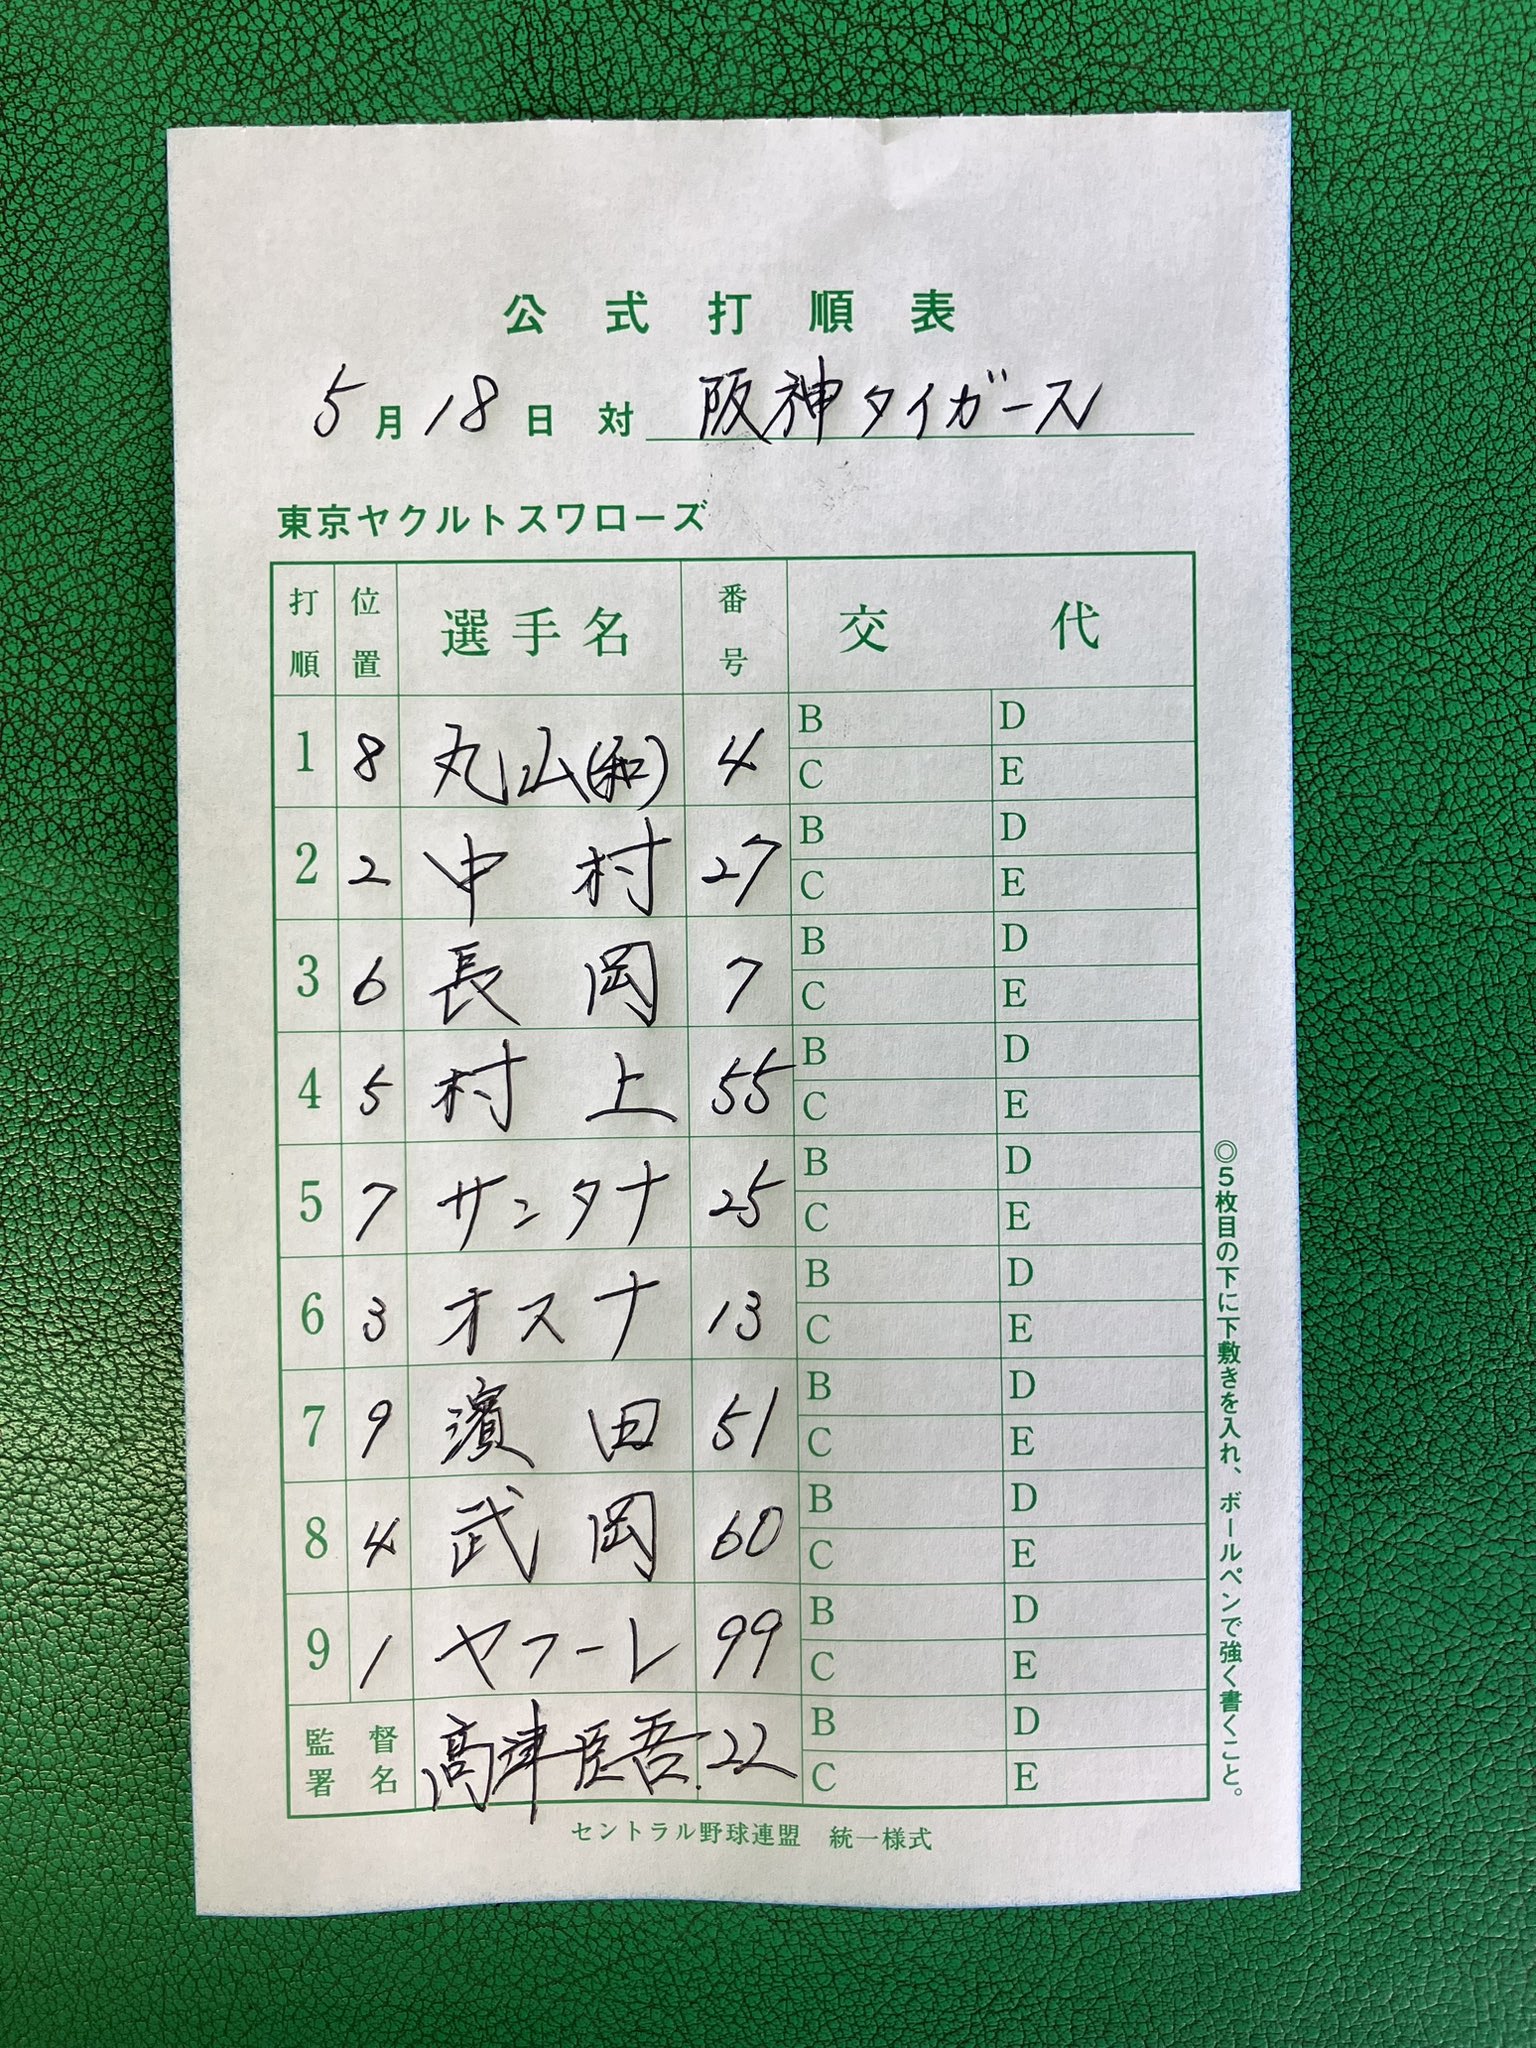 公式打順表
5月18日 対 阪神タイガース
東京ヤクルトスワローズ
打順 位置 選手名 番号 交代
1 8 丸山(和) 4 B D
C E
2 2 中村 27 B D
C E
3 6 長岡 7 B D
C E
4 5 村上 55 B D
C E
5 7 サンタナ 25 B D
C E
6 3 オスナ 13 B D
C E
7 9 濱田 51 B D
C E
8 4 武岡 60 B D
C E
9 1 ヤフーレ 99 B D
C E
監督署名 高津臣吾 22 B D
C E
セントラル野球連盟 統一様式
◎5枚目の下に下敷きを入れ、ボールペンで強く書くこと。